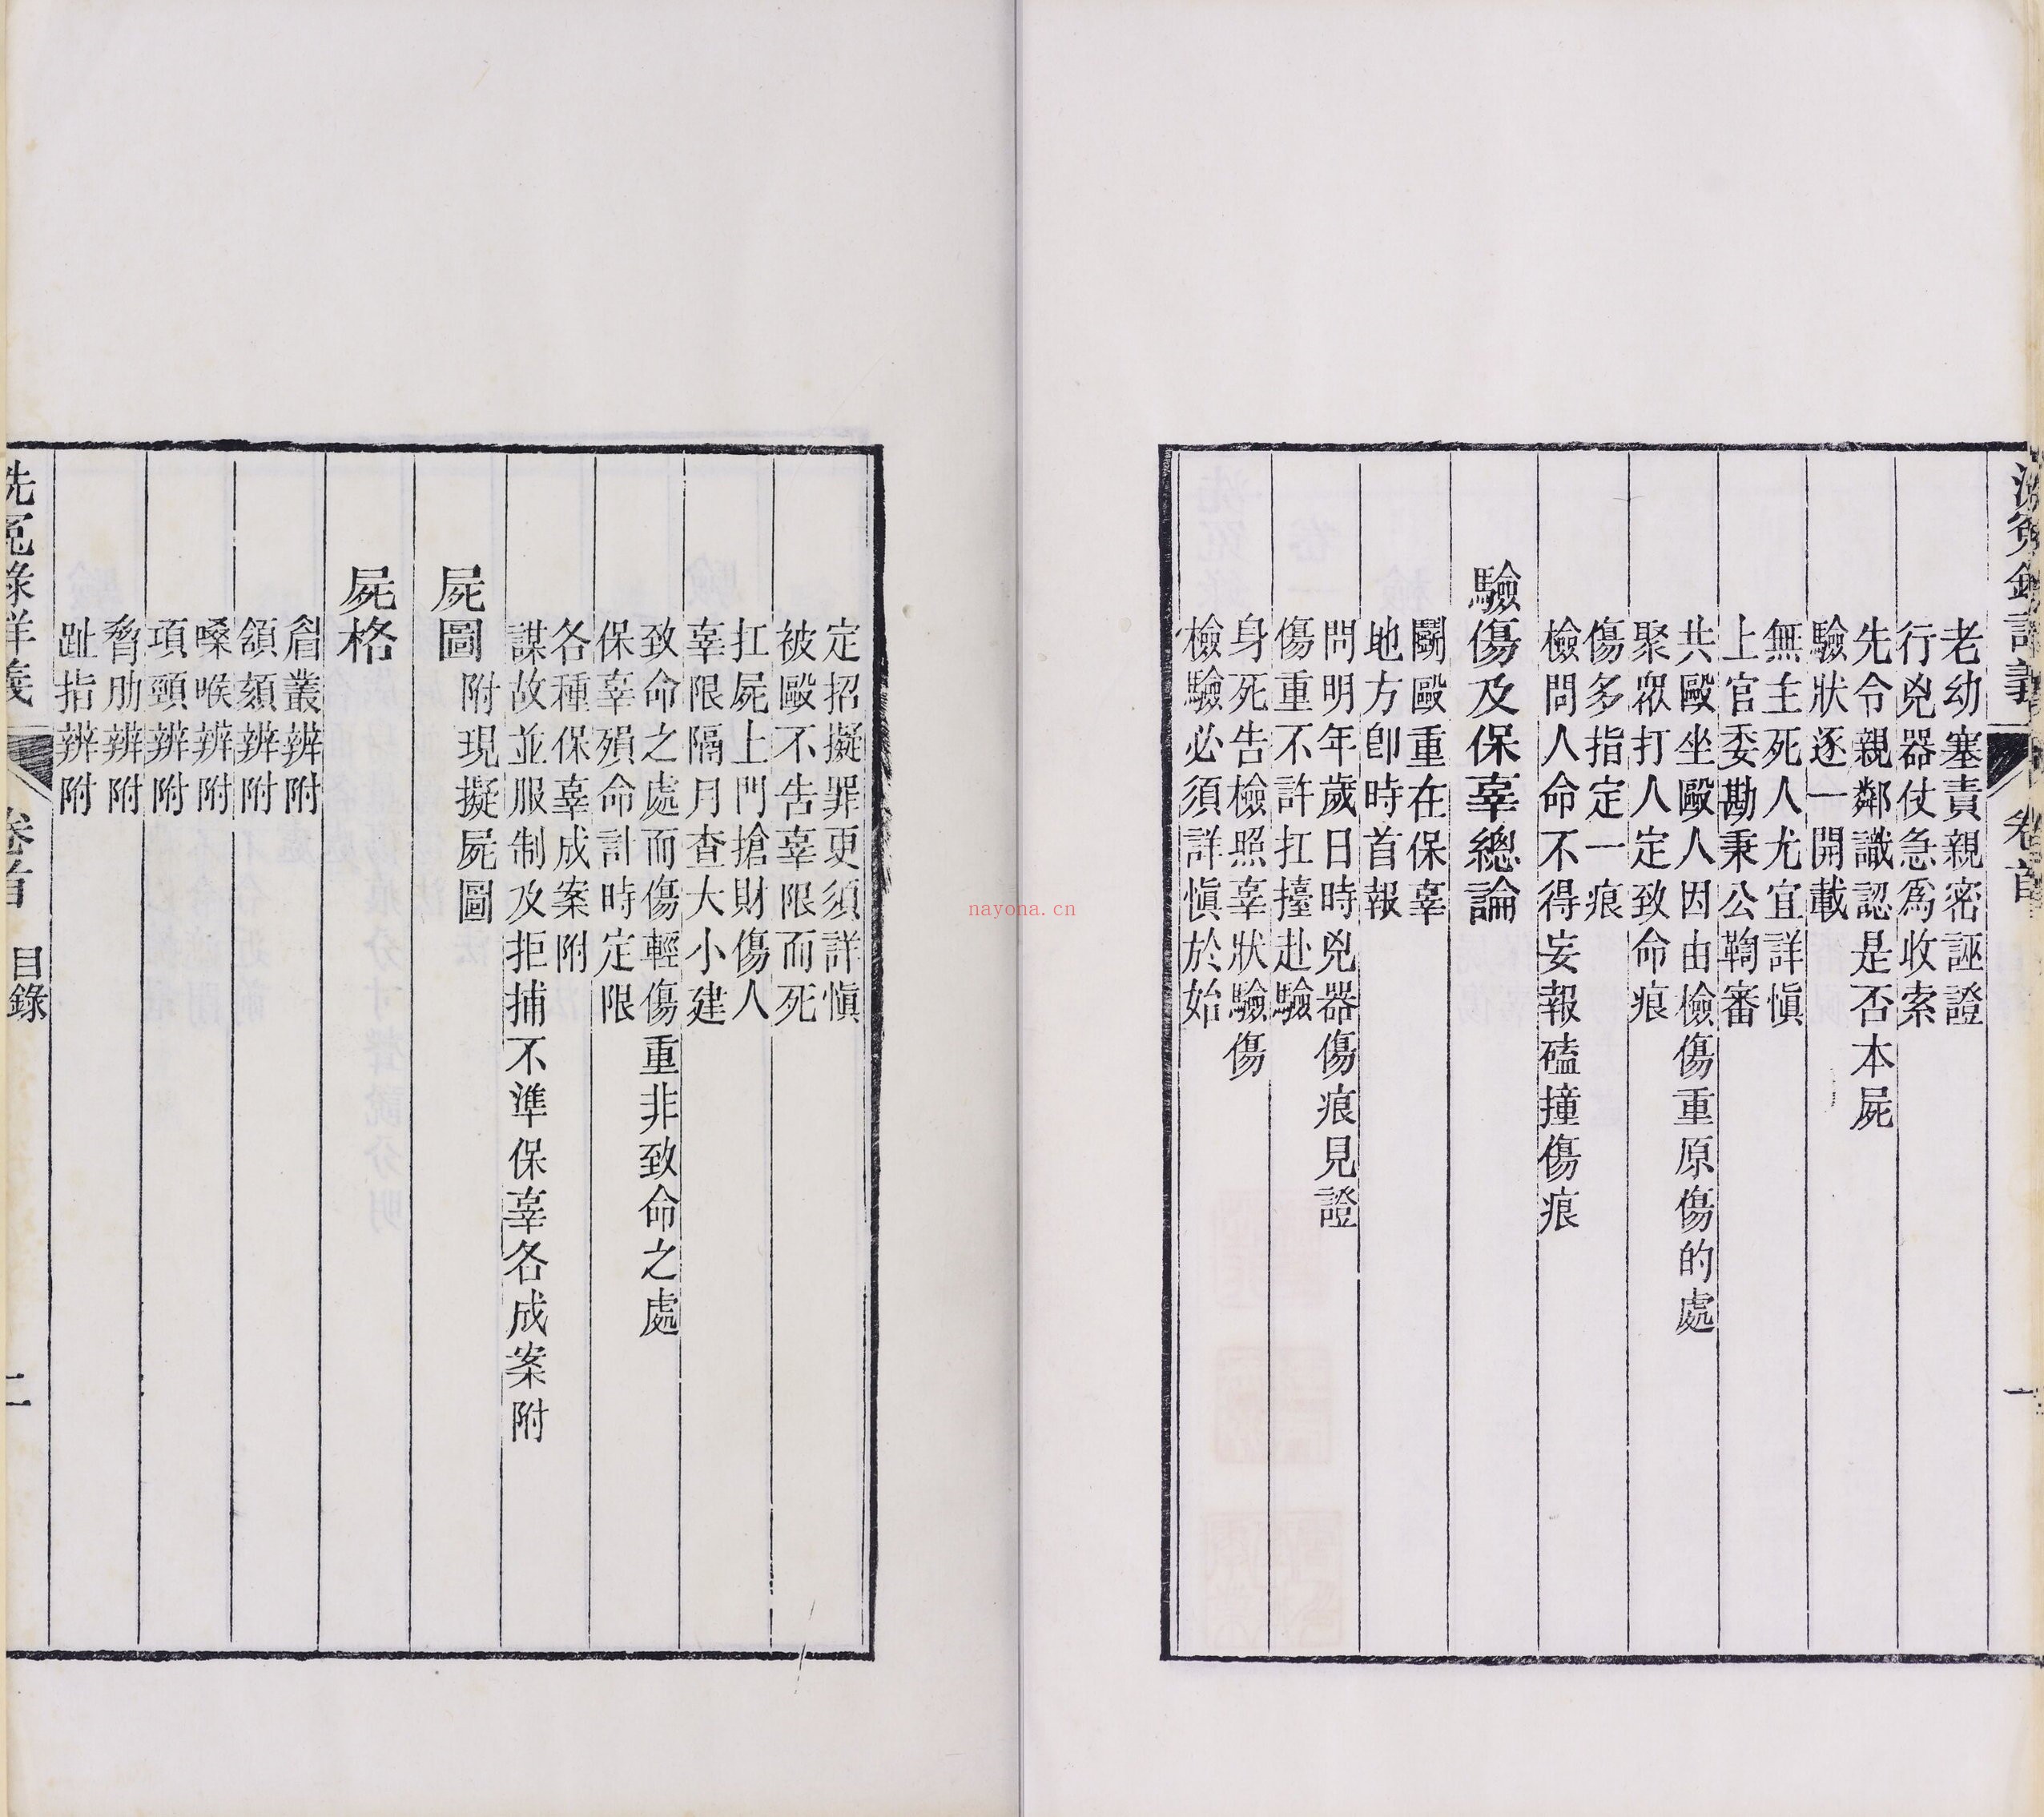 洗冤錄詳義 卷首 一
老幼塞責親密誣證
行兇器仗急爲收索
先令親鄰識認是否本屍
驗狀逐一開載
無主死人尤宜詳愼
上官委勘秉公鞫審
共毆坐毆人因由檢傷重原傷的處
聚眾打人定致命痕
傷多指定一痕
檢問人命不得妄報磕撞傷痕
驗傷及保辜總論
鬭毆重在保辜
地方卽時首報
問明年歲日時兇器傷痕見證
傷重不許扛擡赴驗
身死告檢照辜狀驗傷
檢驗必須詳愼於始
定招擬罪更須詳愼
被毆不告辜限而死
扛屍上門搶財傷人
辜限隔月查大小建
致命之處而傷輕傷重非致命之處
保辜殞命計時定限
各種保辜成案附
謀故並服制及拒捕不準保辜各成案附
屍圖 附現擬屍圖
屍格
眉叢辨附
頷頦辨附
嗓喉辨附
項頸辨附
脅肋辨附
趾指辨附
洗冤錄詳義 卷首 目錄 二
nayona.cn